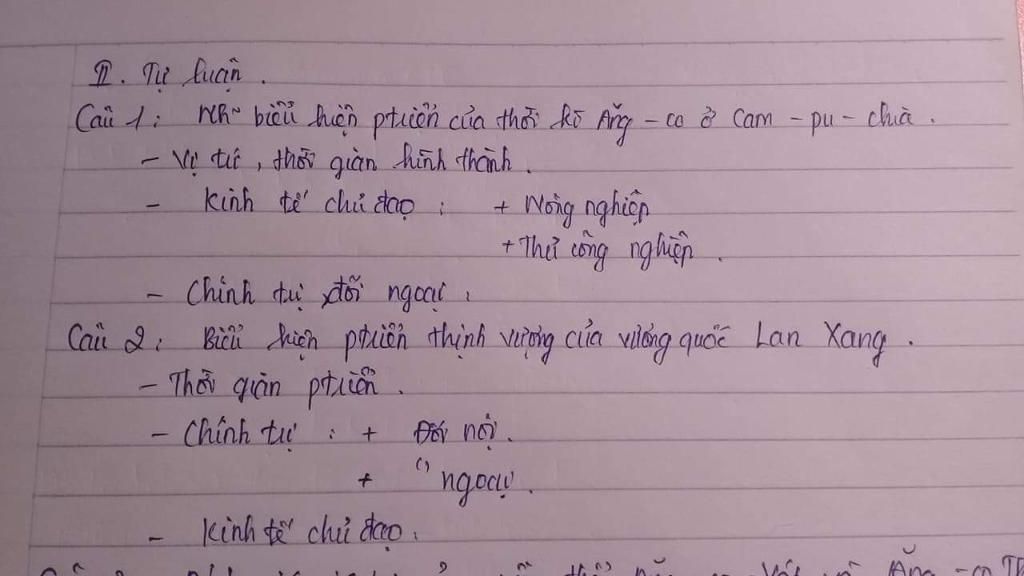 II. Tự luận.
Câu 1: Nh~ biểu hiện ptriển của thời kì Ăng-co ở Cam-pu-chia.
- Vị trí, thời gian hình thành.
- Kinh tế chủ đạo: + Nông nghiệp
+ Thủ công nghiệp.
- Chính trị, đối ngoại:
Câu 2: Biểu hiện ptriển thịnh vượng của vương quốc Lan Xang.
- Thời gian ptriển.
- Chính trị: + Đối nội.
+ () ngoại.
- Kinh tế chủ đạo:
Ăng-co